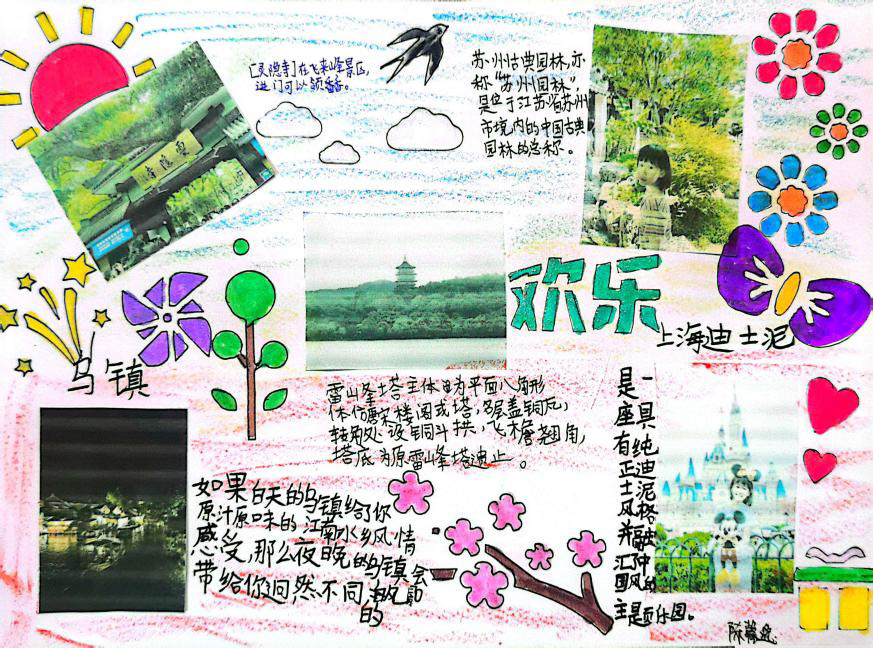 [灵隐寺]在飞来峰景区,
进门可以领香。
靈隱寺
苏州古典园林,亦
称“苏州园林”,
是位于江苏省苏州
市境内的中国古典
园林的总称。
欢乐
上海迪士泥
乌镇
雷山峰塔主体为平面八角形
体仿唐宋楼阁式塔,各层盖铜瓦,
转角处设铜斗拱,飞檐翘角,
塔底为原雷峰塔遗止。
如果白天的乌镇给了你
原汁原味的江南水乡风情
感受,那么夜晚的乌镇会
带给你迥然不同的
的
是一
座具
有纯
正迪
士泥
风格
并融
汇中
国风的
主题乐园。